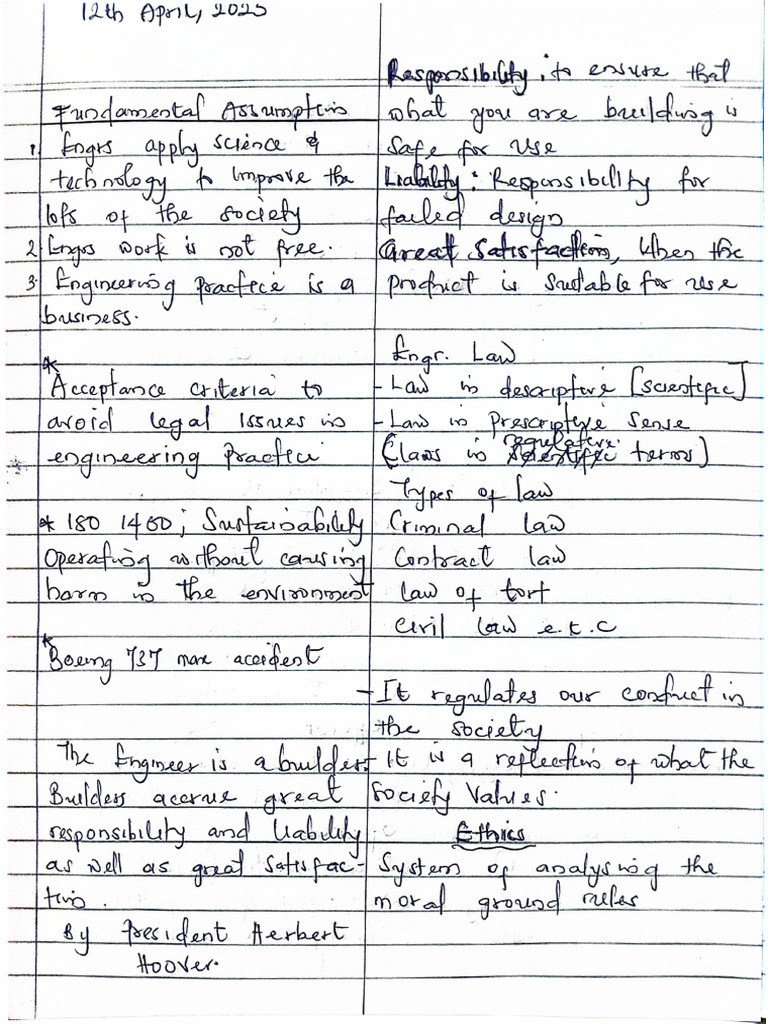 12th April, 2025
Fundamental Assumptions
1. Engrs apply science &
technology to improve the
lofs of the society
2 Engrs work is not free.
3. Engineering practice is a
business.
* Acceptance criteria to
avoid legal issues in
engineering practice
* ISO 1400; Sustainability
Operating without causing
harm in the environment
* Boeing 737 max accident
The Engineer is a builder.
Builders accrue great
responsibility and liability
as well as great satisfac-
tion.
By President Herbert
Hoover.
Responsibility: to ensure that
what you are building is
safe for use
Liability: Responsibility for
failed design
Great Satisfaction, When the
product is suitable for use
Engr. Law
- Law in descriptive [scientific]
- Law in Prescriptive sense
regulative.
(laws in scientific terms)
Types of law
Criminal law
Contract law
law of tort
Civil law e.t.c
- It regulates our conduct in
the society
- It is a reflection of what the
society values.
Ethics
System of analysing the
moral ground rules